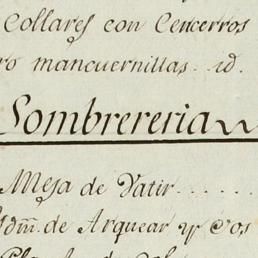 Collares con Cencerros
ro mancuernillas... id.
Sombrereria
Mesa de Vatir......
Ydm. de Arquear y dos